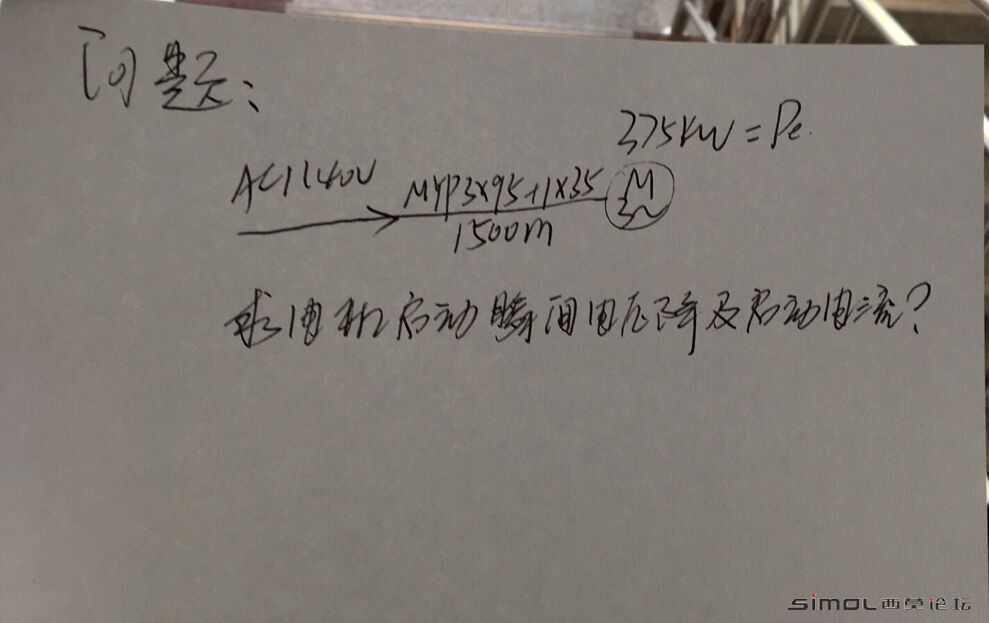 问题:
375KW=Pe.
AC1140V MYP3×95+1×35 M
3~
1500m
求电机启动瞬间电压降及启动电流?
SIMOL西莫论坛